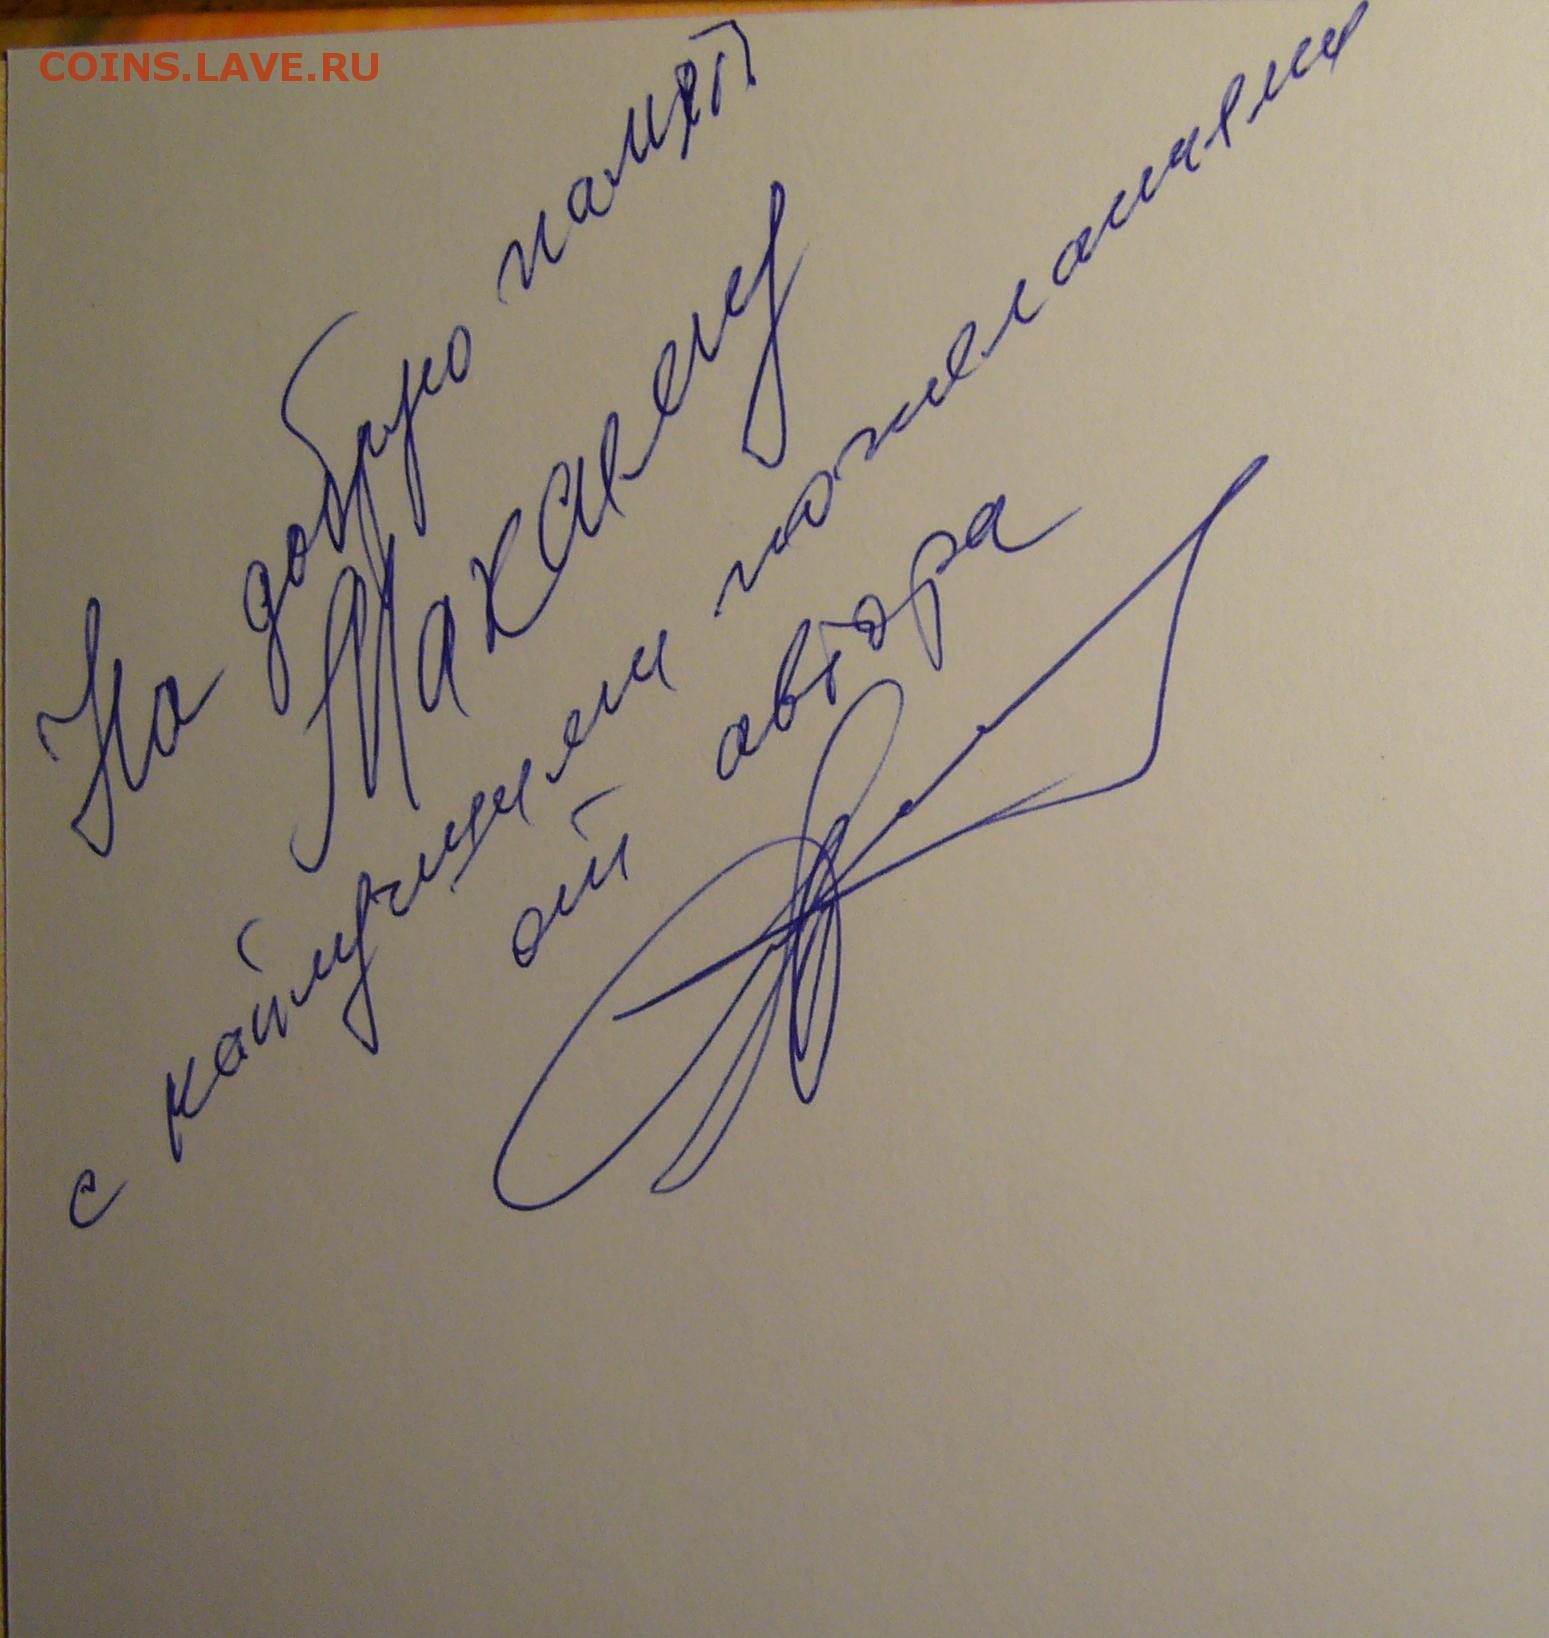 COINS.LAVE.RU
На добрую память
с наилучшими пожеланиями
от автора